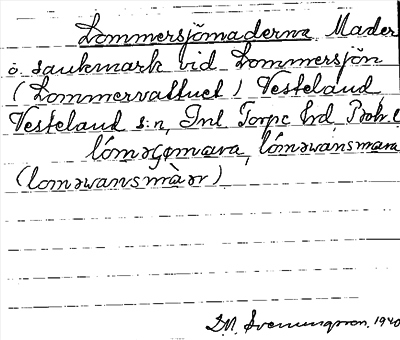 Lommersjömaderna Mader
o. sankmark vid Lommersjön
(Lommervattnet) Vesteland
Vesteland s:n, Inl Torpe hd Boh. l
lómәʂømara, lómәwansmara
(lomәwansmàәr)
D.M. Svenningson. 1940